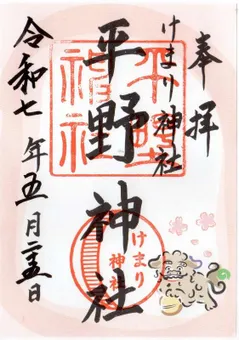 奉拝
けまり神社
平野神社
令和七年五月二五日
平野
神社
けまり
神社